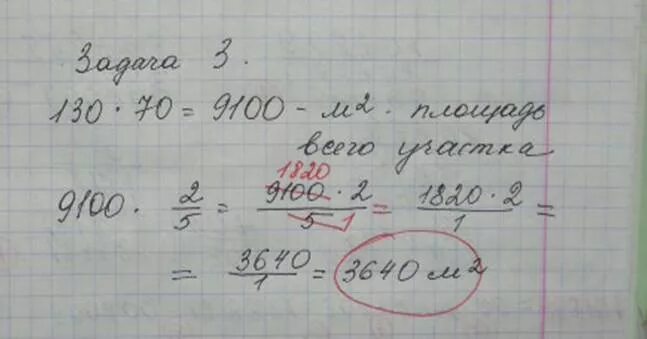 Задача 3.
130 · 70 = 9100 - м² · площадь
всего участка
1820
9100 · 2/5 = 9100 · 2/5 1 = 1820 · 2/1 =
= 3640/1 = 3640 м²